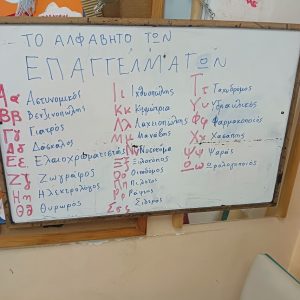 ΤΟ ΑΛΦΑΒΗΤΟ ΤΩΝ
ΕΠΑΓΓΕΛΜΑΤΩΝ
Αα Αστυνομικός
Ββ Βενζινοπώλης
Γγ Γιατρός
Δδ Δασκάλος
Εε Ελαιοχρωματιστής
Ζζ Ζωγράφος
Ηη Ηλεκτρολόγος
Θθ Θυρωρός
Ιι Ιχθυοπώλης
Κκ Κηπουρός
Λλ Λαχειοπώλης
Μμ Μανάβης
Νν Νοσοκόμα
Ξξ Ξυλοκόπος
Οο Οικοδόμος
Ππ Πιλότος
Ρρ Ράφτης
Σσς Σιδεράς
Ττ Ταχυδρόμος
Υυ Υδραυλικός
Φφ Φαρμακοποιός
Χχ Χασάπης
Ψψ Ψαράς
Ωω Ωρολογοποιός